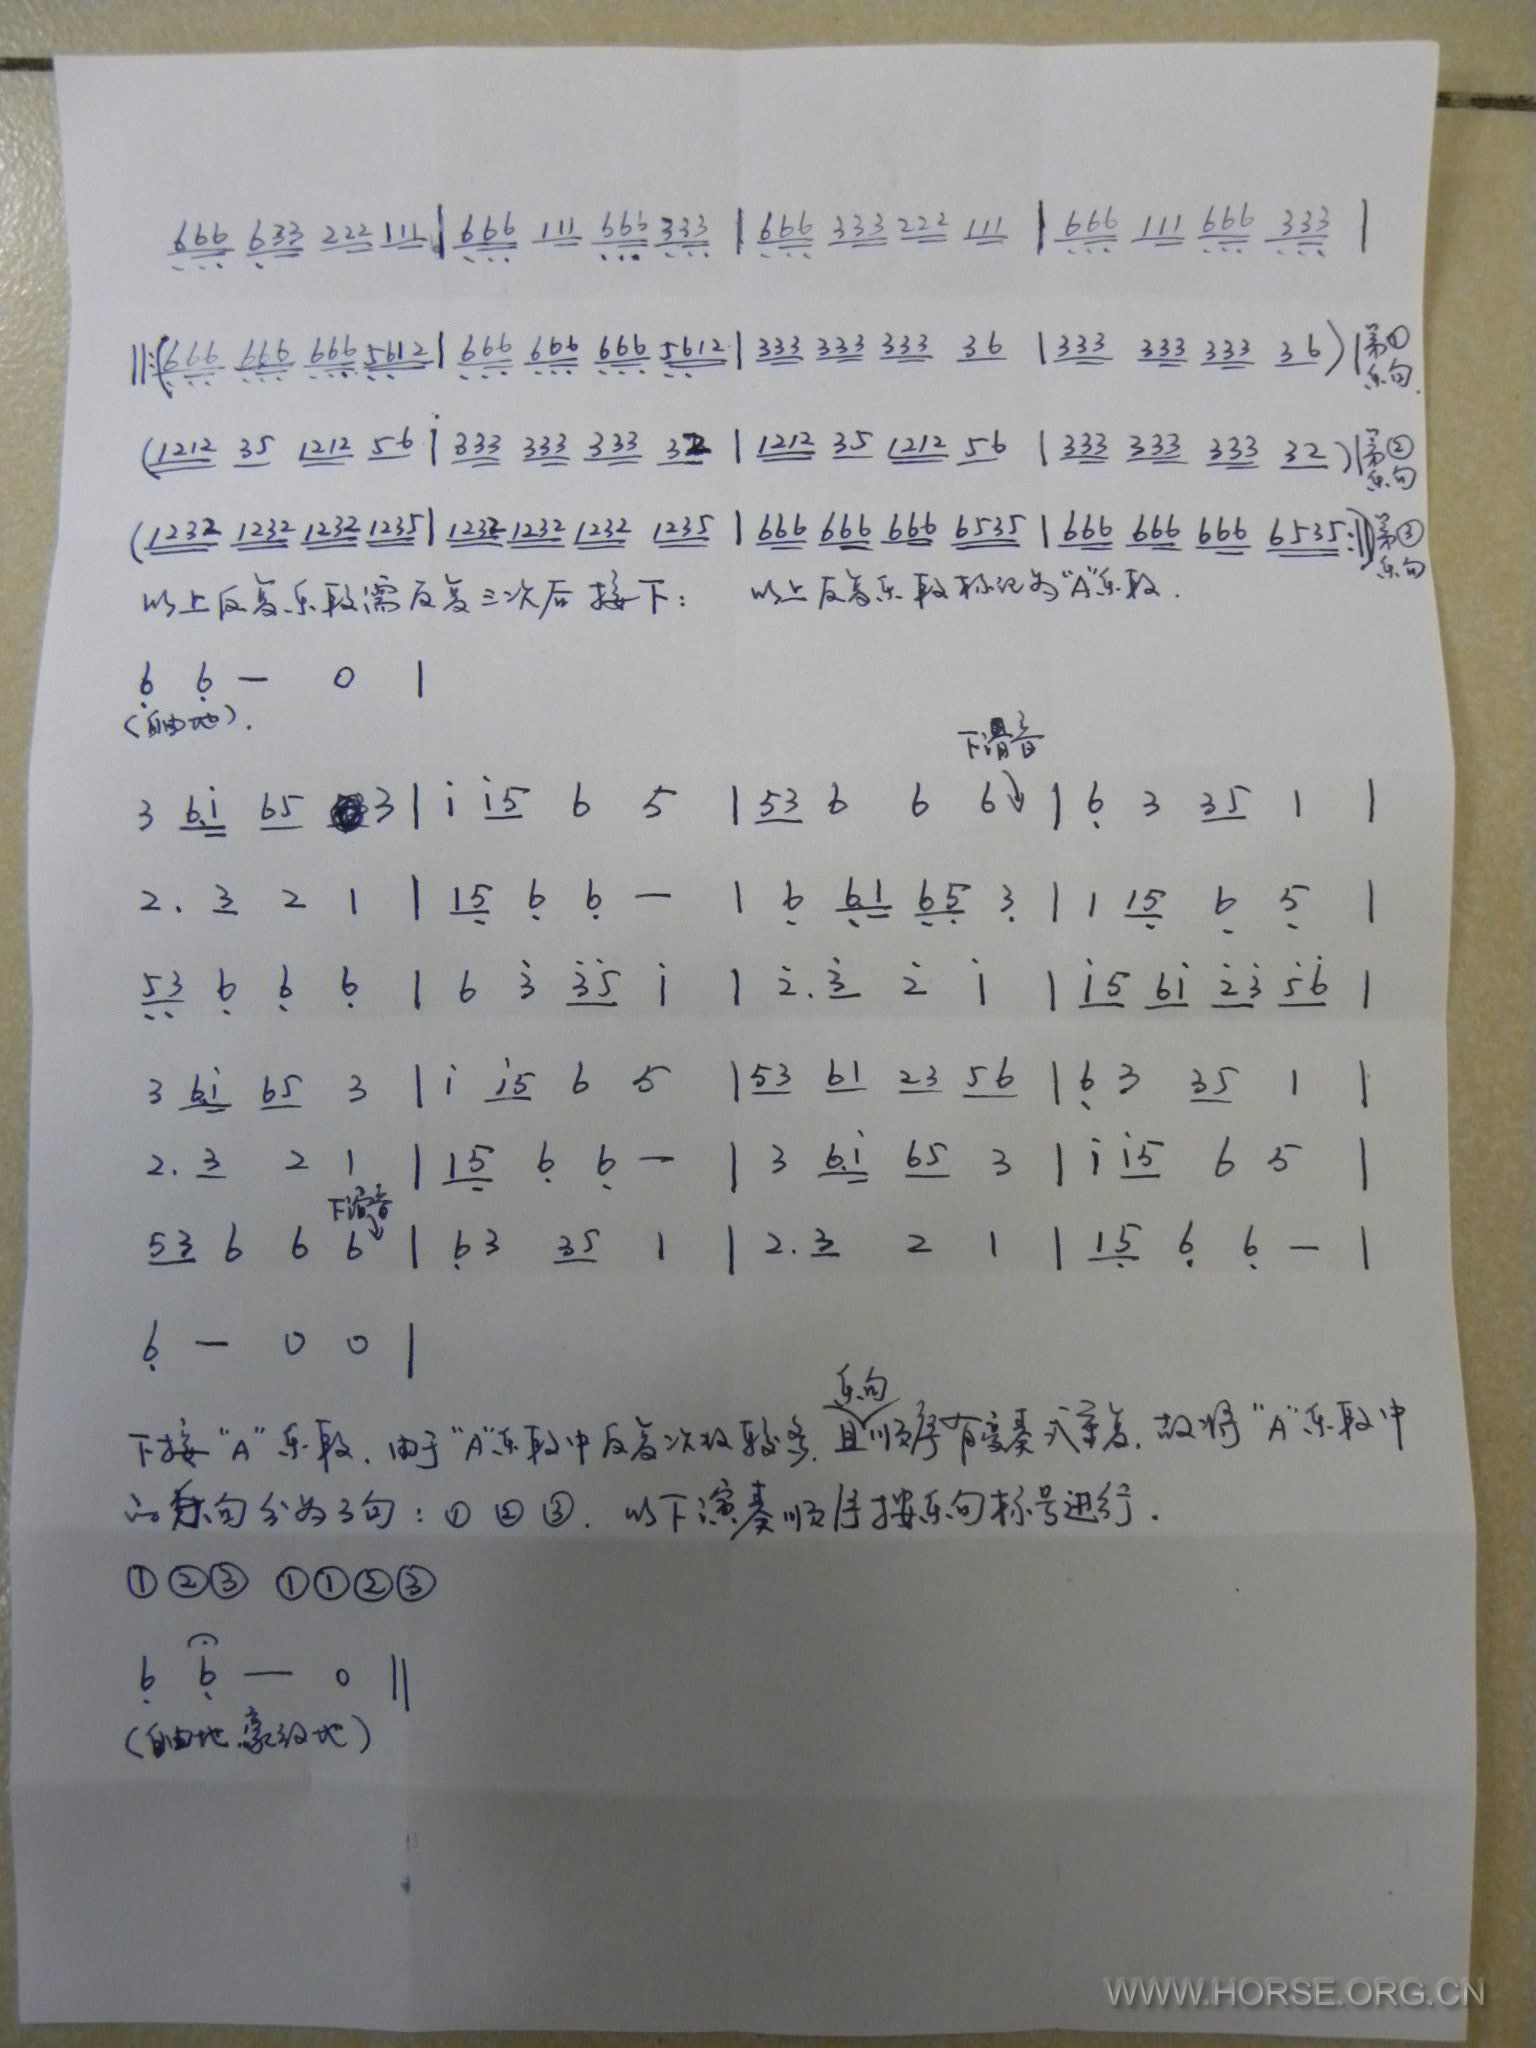 666 633 222 111 | 666 111 666 333 | 666 333 222 111 | 666 111 666 333 |
‖:(666 666 666 5612 | 666 666 666 5612 | 333 333 333 36 | 333 333 333 36 )| 第①乐句.
(1212 35 1212 56 | 333 333 333 32 | 1212 35 1212 56 | 333 333 333 32 )| 第②乐句
(1232 1232 1232 1235 | 1232 1232 1232 1235 | 666 666 666 6535 | 666 666 666 6535 :‖) 第③乐句
以上反复乐段需反复三次后接下: 以上反复乐段标记为"A"乐段.
6 6 — 0 |
(自由地).
下滑音
3 6.i 65 3 | i i5 6 5 | 53 6 6 6 | 6 3 35 1 |
2. 3 2 1 | 15 6 6 — | 6 6.1 65 3 | 1 15 6 5 |
53 6 6 6 | 6 3 35 i | 2. 3 2 i | i5 6i 23 56 |
3 6.i 65 3 | i i5 6 5 | 53 61 23 56 | 6 3 35 1 |
2. 3 2 1 | 15 6 6 — | 3 6.i 65 3 | i i5 6 5 |
下滑音
53 6 6 6 | 6 3 35 1 | 2. 3 2 1 | 15 6 6 — |
6 — 0 0 |
乐句
下接"A"乐段.由于"A"乐段中反复次数较多,且顺序有变奏式重复,故将"A"乐段中
的乐句分为3句:① ② ③. 以下演奏顺序按乐句标号进行.
①②③ ①①②③
6 6 — 0 ‖
(自由地.豪放地)
WWW.HORSE.ORG.CN